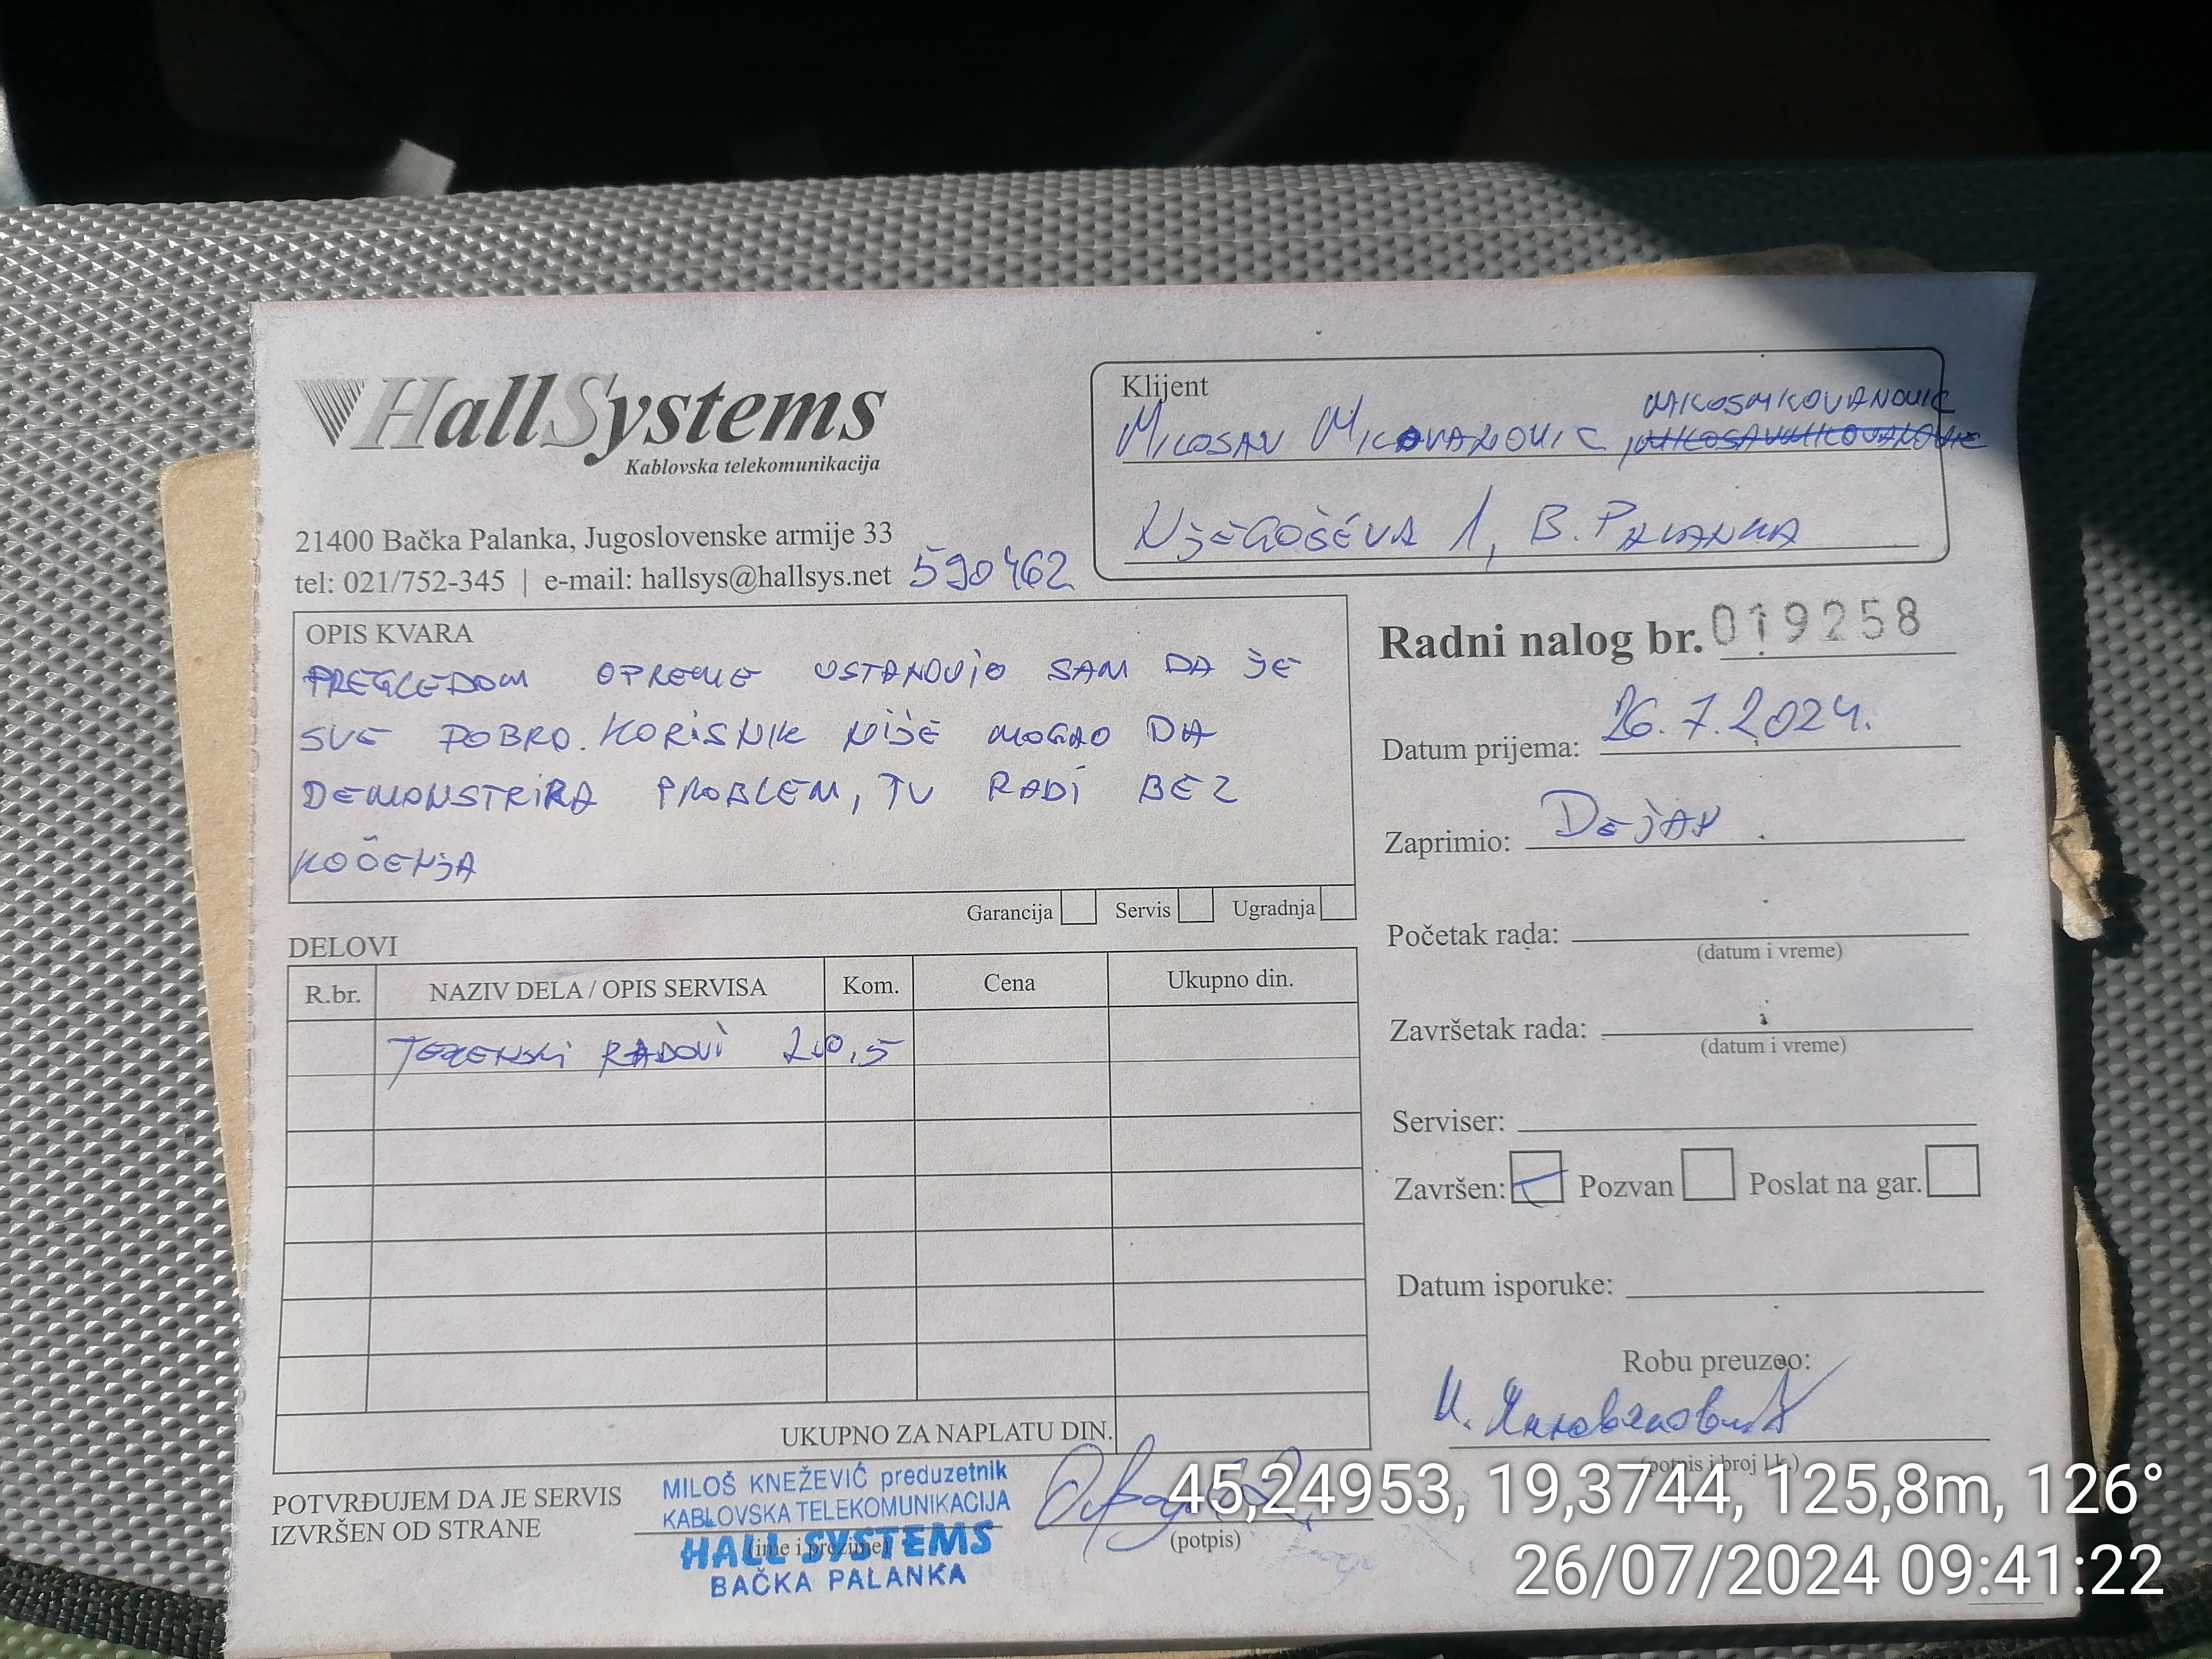 HallSystems
Kablovska telekomunikacija
21400 Bačka Palanka, Jugoslovenske armije 33
tel: 021/752-345 | e-mail: hallsys@hallsys.net
590462
Klijent
MILOSAV MILOVANOVIC, MILOSMILOVANOVIC
NJEGOŠEVA 1, B. PALANKA
OPIS KVARA
PREGLEDOM OPREME USTANOVIO SAM DA JE
SVE DOBRO. KORISNIK NIJE MOGAO DA
DEMONSTRIRA PROBLEM, TV RADI BEZ
KOČENJA
Garancija Servis Ugradnja
Radni nalog br. 019258
Datum prijema: 26.7.2024.
Zaprimio: DEJAN
Početak rada:
(datum i vreme)
Završetak rada:
(datum i vreme)
Serviser:
Završen: Pozvan Poslat na gar.
Datum isporuke:
Robu preuzeo:
(potpis i broj l.k.)
DELOVI
R.br. NAZIV DELA / OPIS SERVISA Kom. Cena Ukupno din.
TERENSKI RADOVI
UKUPNO ZA NAPLATU DIN.
POTVRĐUJEM DA JE SERVIS
IZVRŠEN OD STRANE
MILOŠ KNEŽEVIĆ preduzetnik
KABLOVSKA TELEKOMUNIKACIJA
HALL SYSTEMS
BAČKA PALANKA
(ime i prezime)
(potpis)
45,24953, 19,3744, 125,8m, 126°
26/07/2024 09:41:22